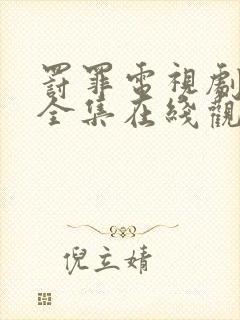 罸罪電視劇
全集在綫觀
倪立婧